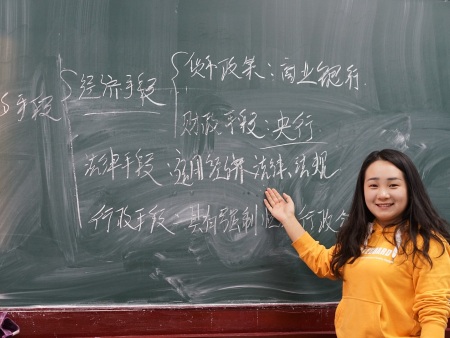 手段
经济手段
货币政策：商业银行
财政手段：央行
法律手段：运用经济法律、法规
行政手段：具有强制 行政